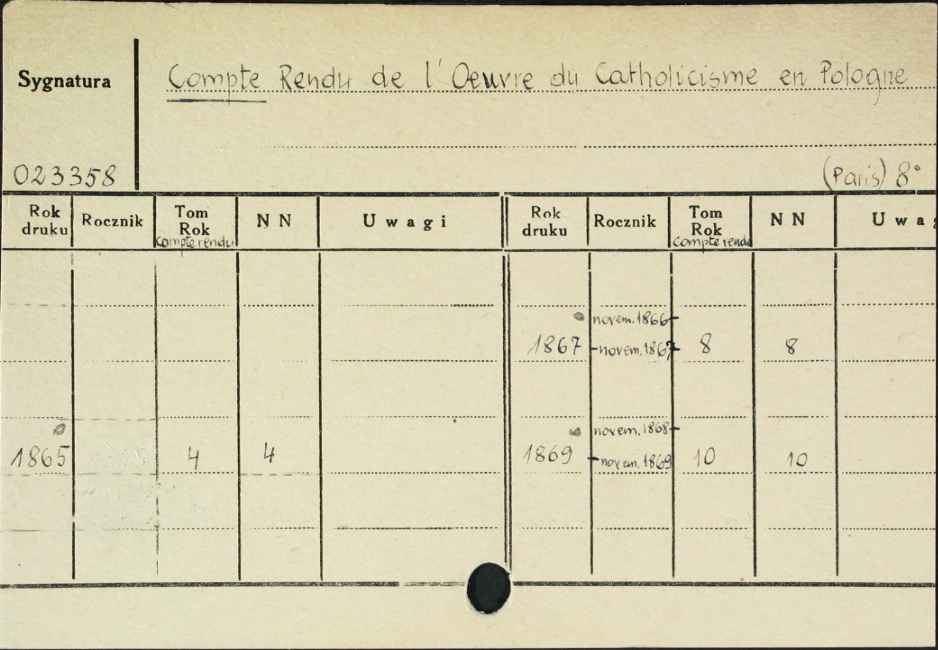 Sygnatura
Compte Rendu de l'Oeuvre du Catholicisme en Pologne
023358
(Paris) 8°
Rok druku Rocznik Tom Rok Compte rendu N N Uwagi Rok druku Rocznik Tom Rok Compte rendu N N
novem. 1866
1867 novem. 1867 8 8
novem. 1868
1865 4 4 1869 novem. 1869 10 10